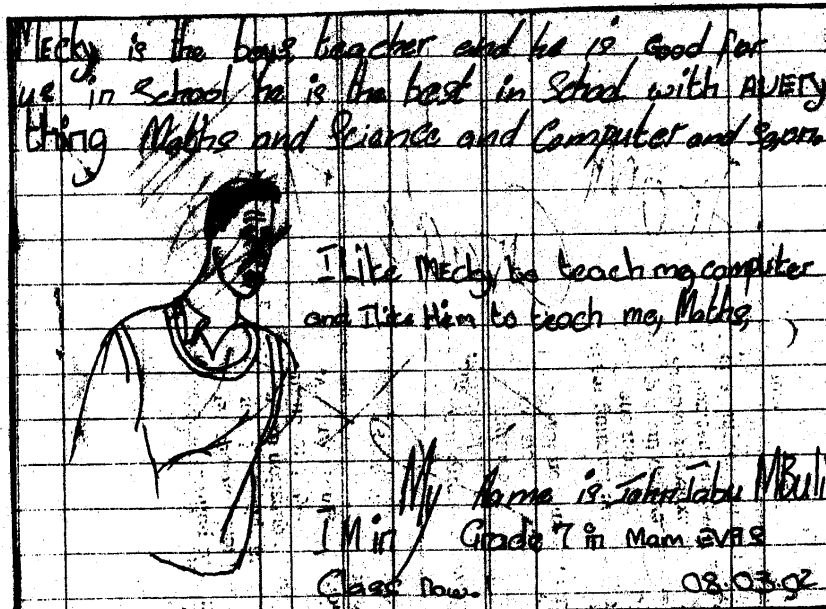 Mecky is the boys, teacher and he is Good for
us in School he is the best in School with AVERy
thing Maths and Science and Computer and soon.
I Like Mecky, to teach me, computer
and I like Him to teach me, Maths,
My name is John Tabu MBuli
I M in Grade 7 in Mam EVAS
Cass now.
08.03.02